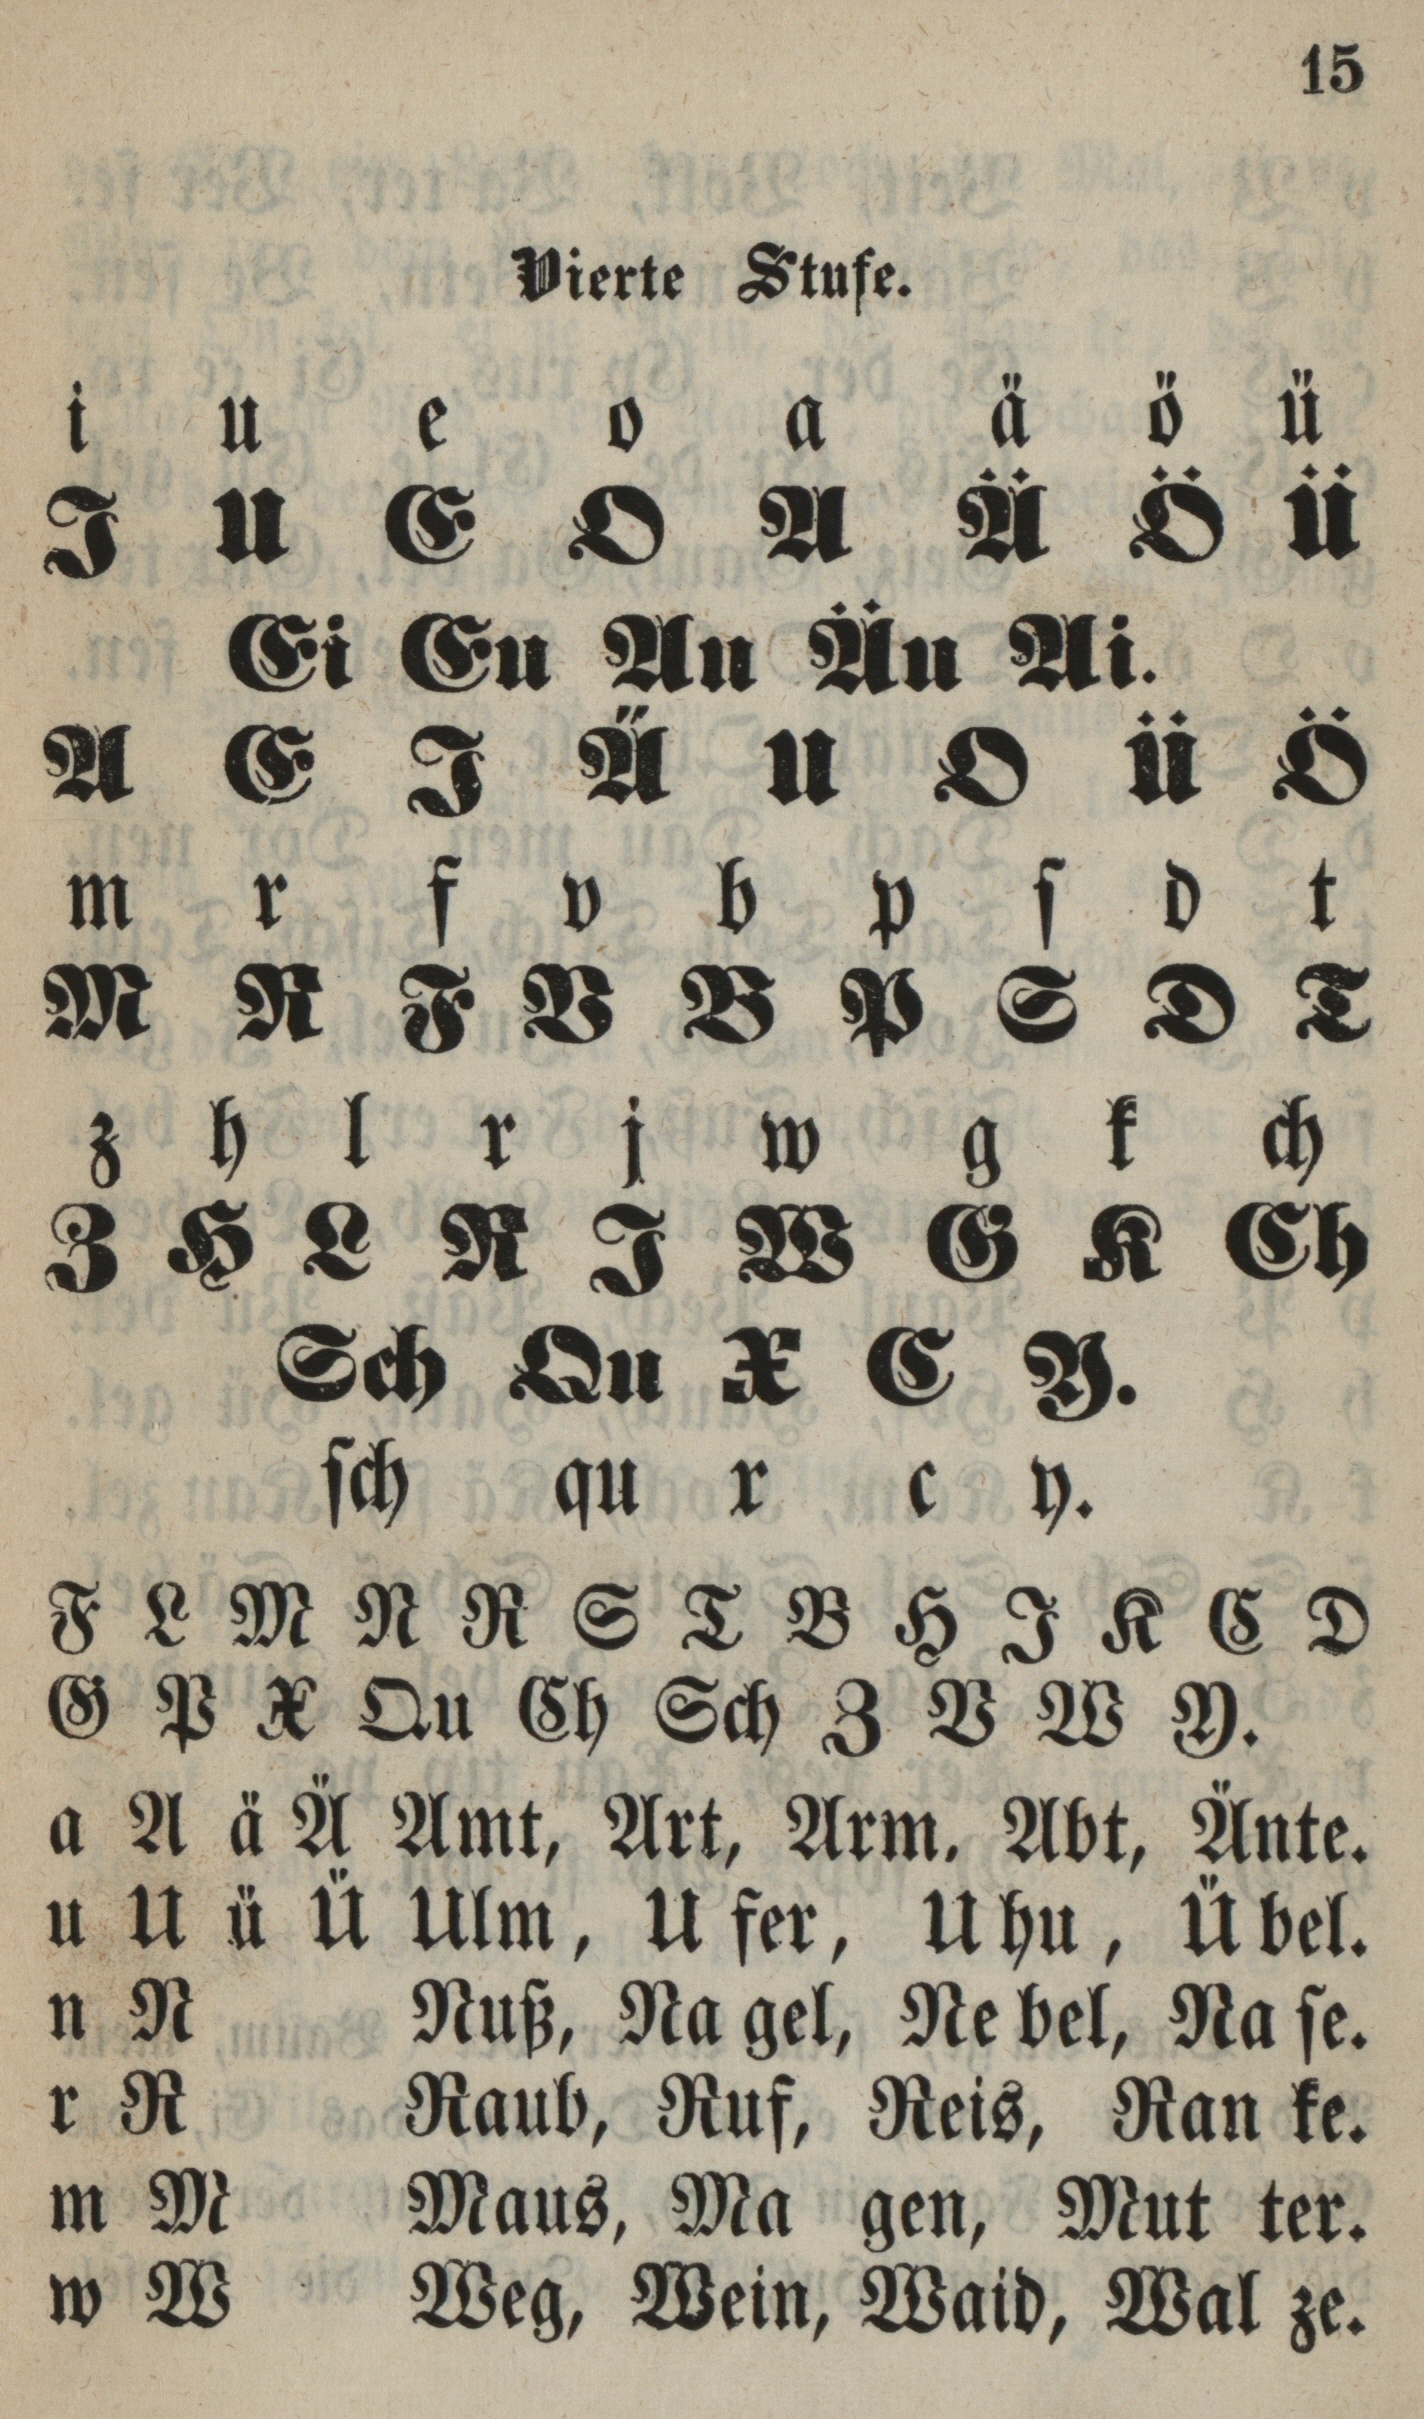 15
Vierte Stufe.
i u e o a ä ö ü
I U E O A Ä Ö Ü
Ei Eu Au Äu Ai.
A E I Ä U O Ü Ö
m r f v b p ſ d t
M R F V B P S D T
z h l r j w g k ch
Z H L R J W G K Ch
Sch Qu X C Y.
ſch qu r c y.
F L M N R S T B H J K C D
G P X Qu Ch Sch Z V W Y.
a A ä Ä Amt, Art, Arm. Abt, Änte.
u U ü Ü Ulm, U fer, U hu, Ü bel.
n N Nuß, Na gel, Ne bel, Na ſe.
r R Raub, Ruf, Reis, Ran ke.
m M Maus, Ma gen, Mut ter.
w W Weg, Wein, Waid, Wal ze.